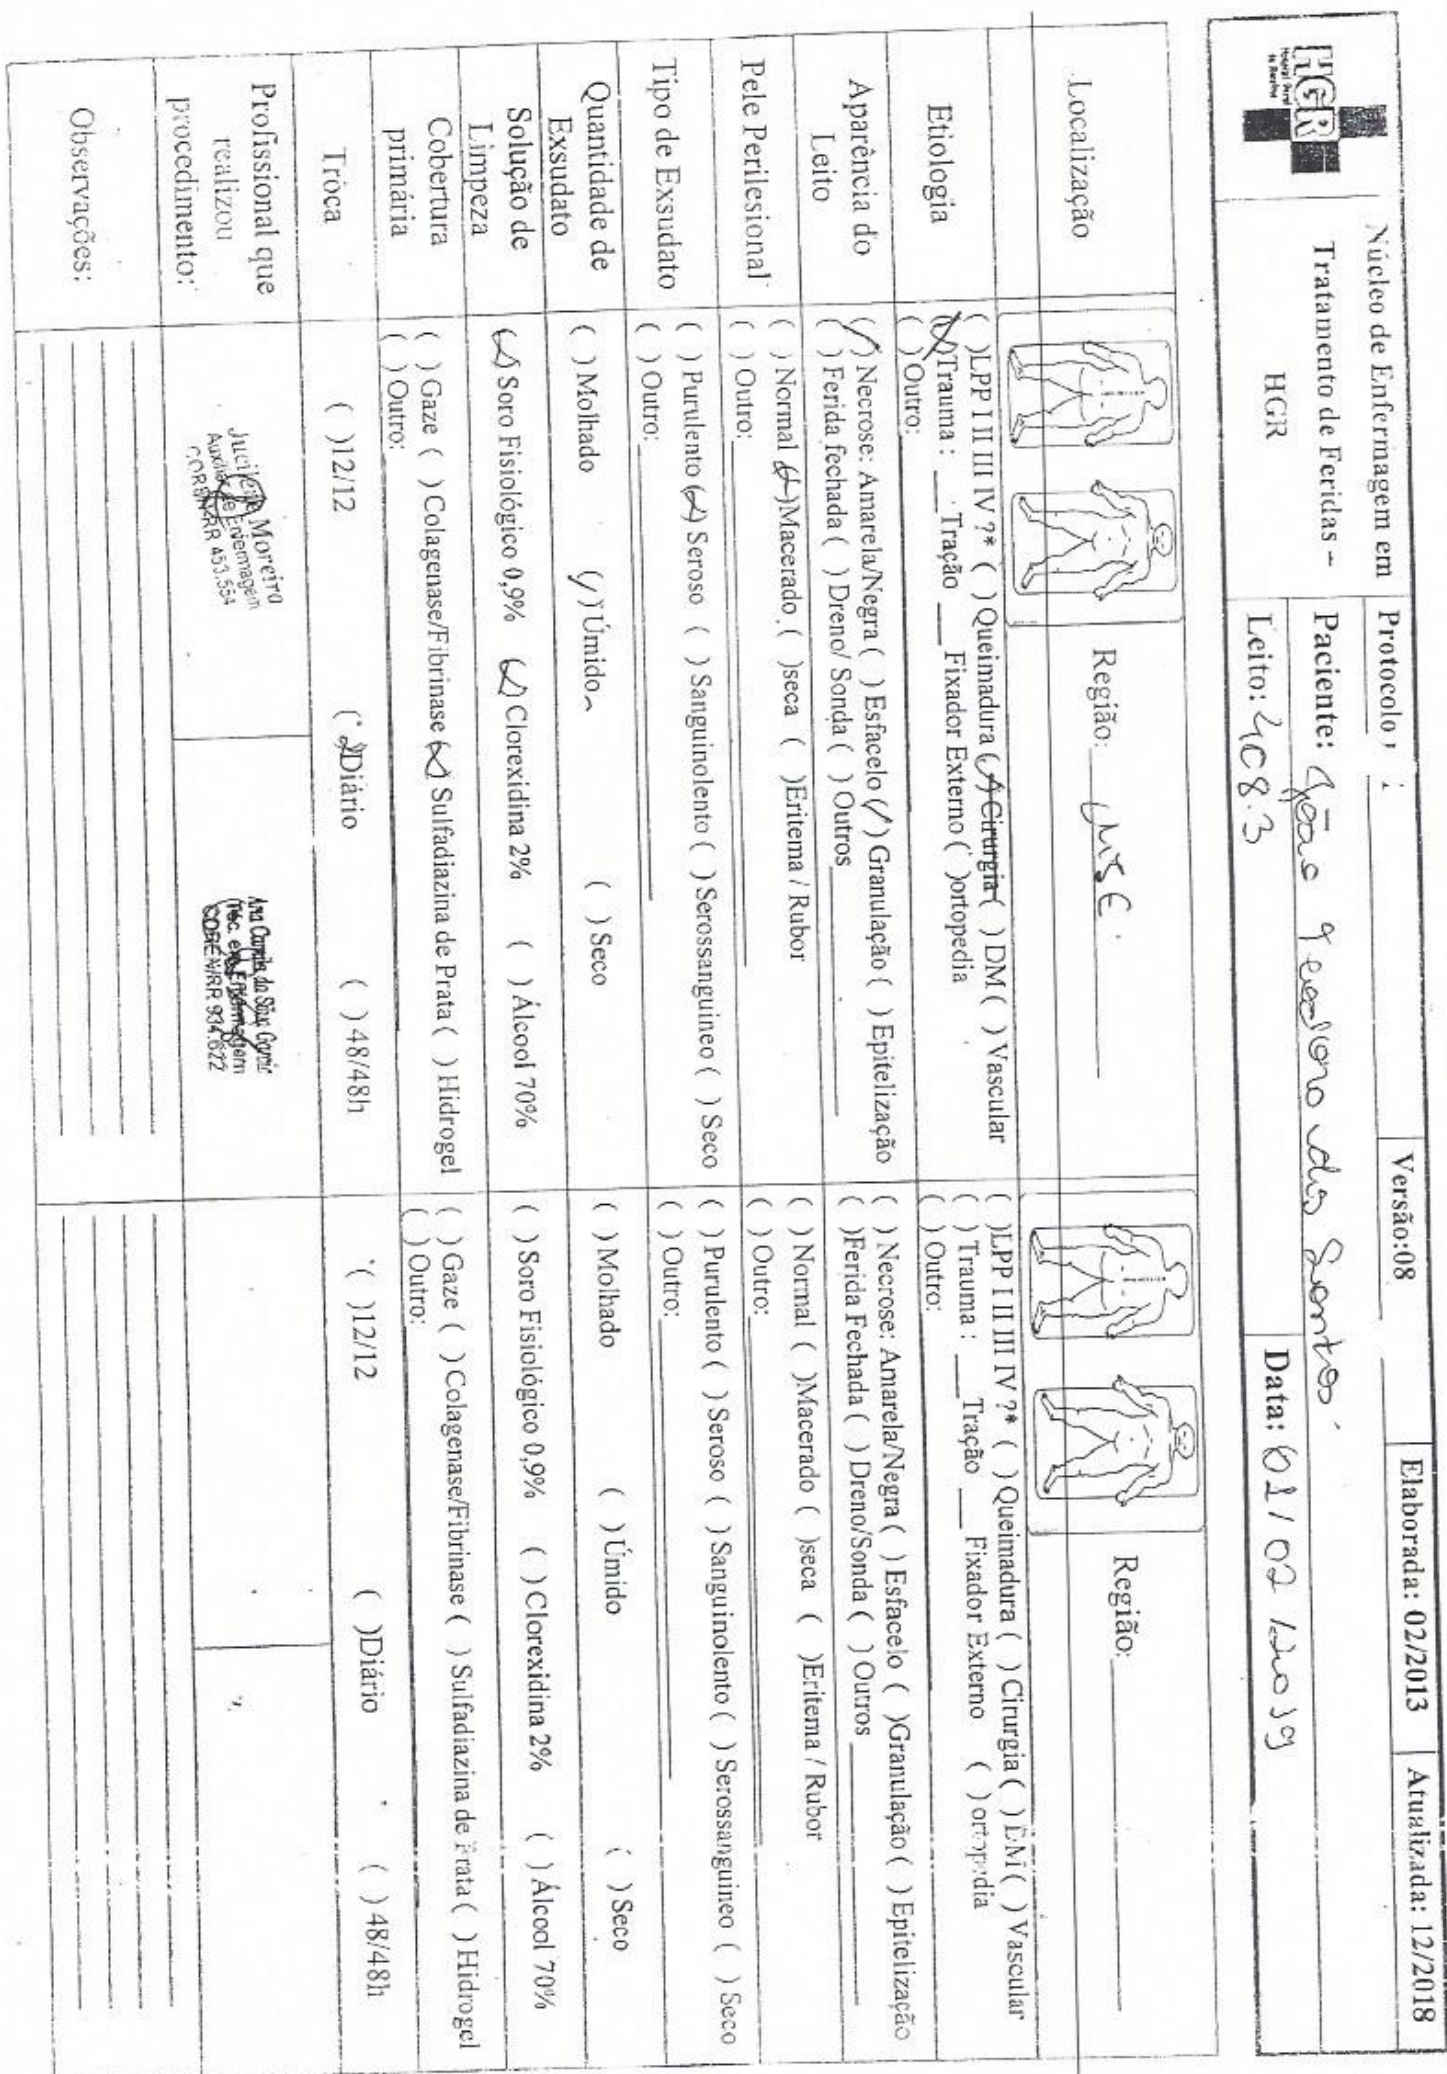 HGR
Hospital Geral
de Roraima
Núcleo de Enfermagem em
Tratamento de Feridas –
HGR
Protocolo
Versão:08
Elaborada: 02/2013
Atualizada: 12/2018
Paciente: João dos Santos.
Leito: 408.3
Data: 01/02/2019
Localização
Região: MSE.
Região:
Etiologia
( )LPP I II III IV ?* ( )Queimadura (x)Cirurgia ( ) DM ( ) Vascular
(x)Trauma : ___Tração ___ Fixador Externo ( )ortopedia
( ) Outro:
( )LPP I II III IV ?* ( )Queimadura ( ) Cirurgia ( ) DM ( ) Vascular
( ) Trauma : ___Tração ___ Fixador Externo ( ) ortopedia
( ) Outro:
Aparência do
Leito
(/) Necrose: Amarela/Negra ( ) Esfacelo (/) Granulação ( ) Epitelização
( ) Ferida fechada ( ) Dreno/ Sonda ( ) Outros
( ) Necrose: Amarela/Negra ( ) Esfacelo ( )Granulação ( ) Epitelização
( )Ferida Fechada ( ) Dreno/Sonda ( ) Outros
Pele Perilesional
( ) Normal (x)Macerado ( )seca ( )Eritema / Rubor
( ) Outro:
( ) Normal ( )Macerado ( )seca ( )Eritema / Rubor
( ) Outro:
Tipo de Exsudato
( ) Purulento (x) Seroso ( ) Sanguinolento ( ) Serossanguineo ( ) Seco
( ) Outro:
( ) Purulento ( ) Seroso ( ) Sanguinolento ( ) Serossanguineo ( ) Seco
( ) Outro:
Quantidade de
Exsudato
( ) Molhado (/) Úmido ( ) Seco
( ) Molhado ( ) Úmido ( ) Seco
Solução de
Limpeza
(x) Soro Fisiológico 0,9% (x) Clorexidina 2% ( ) Álcool 70%
( ) Soro Fisiológico 0,9% ( ) Clorexidina 2% ( ) Álcool 70%
Cobertura
primária
( ) Gaze ( ) Colagenase/Fibrinase (x) Sulfadiazina de Prata ( ) Hidrogel
( ) Outro:
( ) Gaze ( )Colagenase/Fibrinase ( ) Sulfadiazina de Prata ( ) Hidrogel
( ) Outro:
Troca
( )12/12 (x)Diário ( ) 48/48h
( )12/12 ( )Diário ( ) 48/48h
Profissional que
realizou
procedimento:
Moreira
Auxiliar de Enfermagem
COREN-RR 453.554
Ana da Silva
Téc. em Enfermagem
COREN/RR 934.622
Observações: